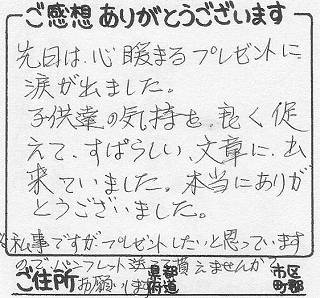 ご感想ありがとうございます
先日は、心暖まるプレゼントに
涙が出ました。
子供達の気持を、良く促
えて、すばらしい、文章に、出
来ていました。本当にありが
とうございました。
私事ですがプレゼントしたいと思っています
のでパンフレット送って貰えませんか?
ご住所 お願いします 都道府県 市区町郡